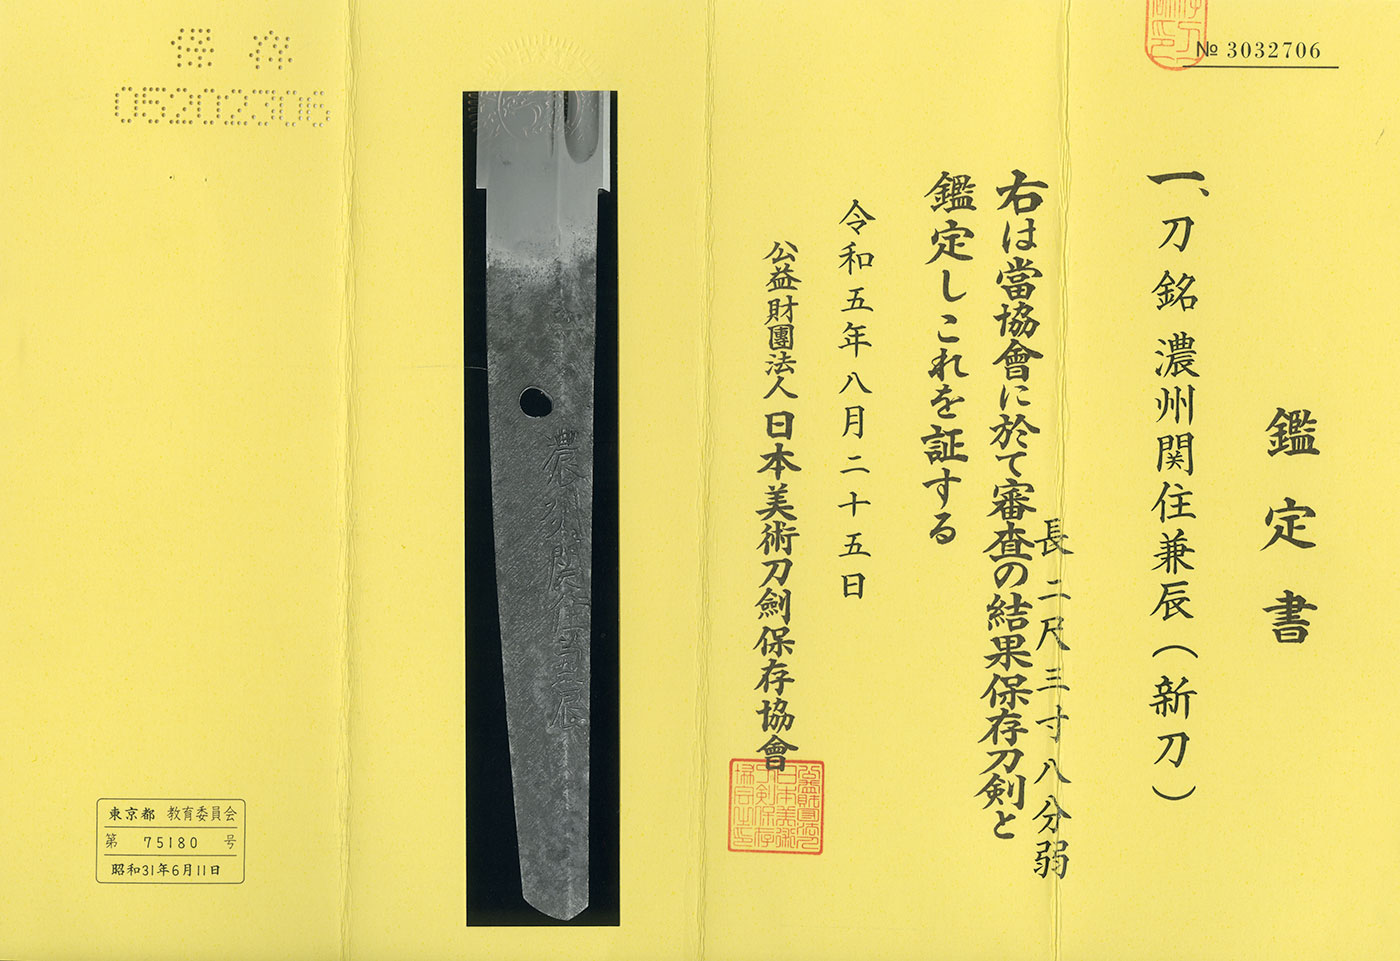 № 3032706
鑑定書
一、刀 銘 濃州関住兼辰(新刀)
長二尺三寸八分弱
右は當協會に於て審査の結果保存刀剣と
鑑定しこれを証する
令和五年八月二十五日
公益財團法人 日本美術刀劍保存協會
濃州関住兼辰
保存
05202306
東京都 教育委員会
第 75180 号
昭和31年6月11日